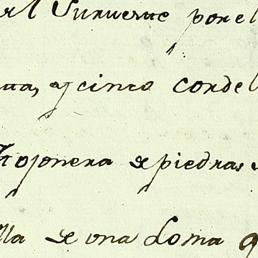 el Surueste por el
ta, y cinco cordel
Mojonera de piedras
lla de una Loma q